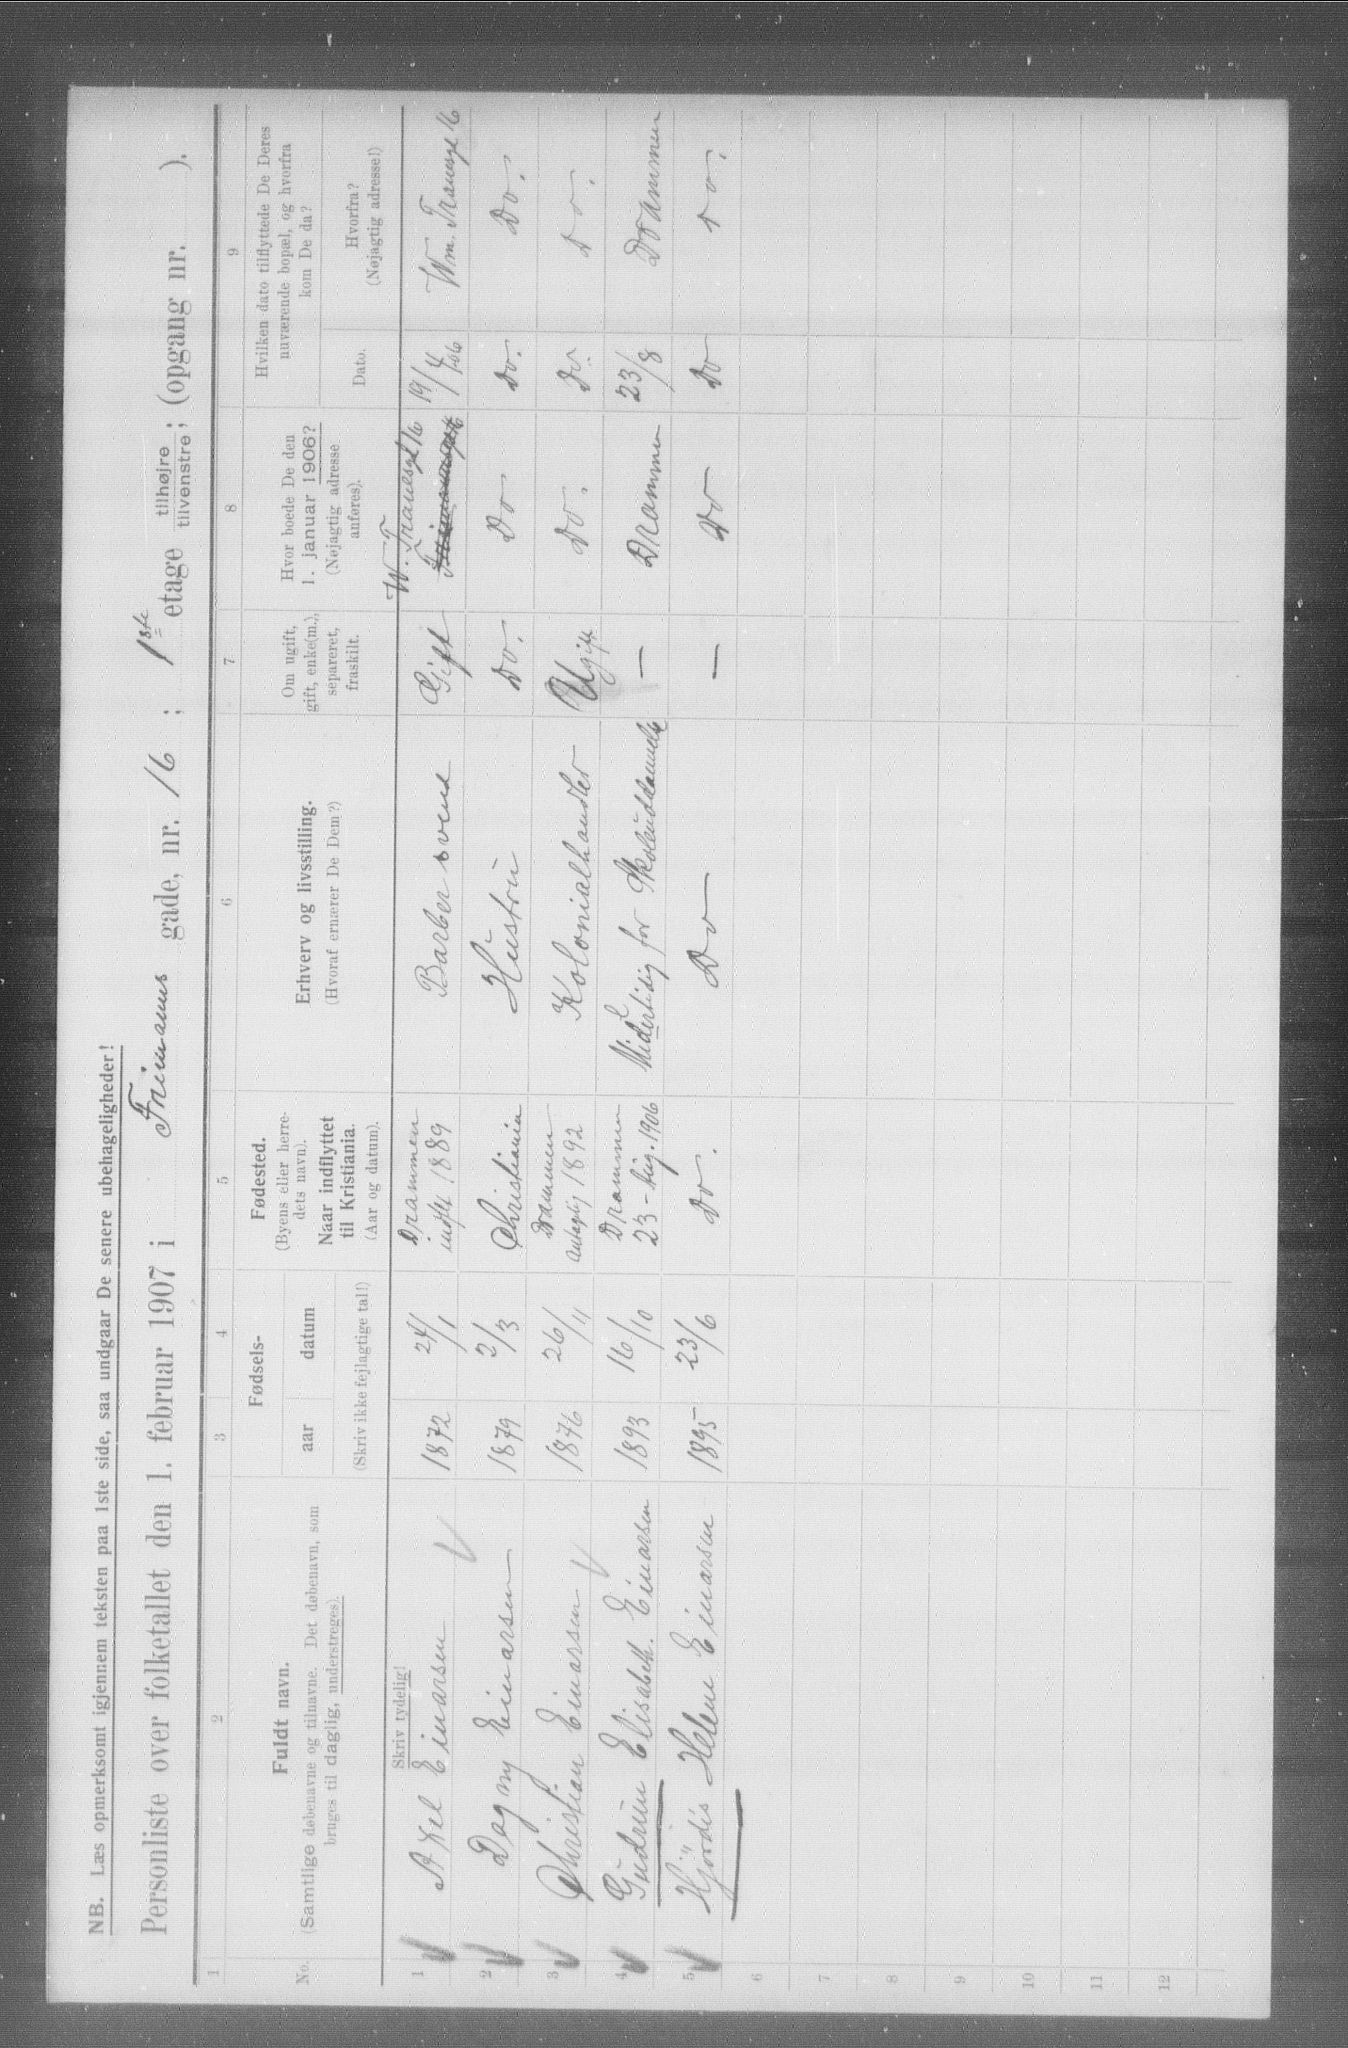 NB. Læs opmerksomt igjennem teksten paa 1ste side, saa undgaar De senere ubehageligheder!
Personliste over folketallet den 1. februar 1907 i Frimanns gade, nr. 16 ; 1ste etage tilhøjre tilvenstre; (opgang nr. ).
1 2 3 4 5 6 7 8 9
No.
Fuldt navn.
(Samtlige døbenavne og tilnavne. Det døbenavn, som
bruges til daglig, understreges).
Fødsels-
aar datum
(Skriv ikke fejlagtige tal!)
Fødested.
(Byens eller herre-
dets navn).
Naar indflyttet
til Kristiania.
(Aar og datum).
Erhverv og livsstilling.
(Hvoraf ernærer De Dem?)
Om ugift,
gift, enke(m.),
separeret,
fraskilt.
Hvor boede De den
1. januar 1906?
(Nøjagtig adresse
anføres).
Hvilken dato tilflyttede De Deres
nuværende bopæl, og hvorfra
kom De da?
Dato.
Hvorfra?
(Nøjagtig adresse!)
Skriv tydelig!
1 Axel Einarsen 1872 24/1 Drammen
indfl. 1889 Barber svend Gift W. Tranesgt 16 19/4 1906 Wm. Tranesgt 16
2 Dagny Einarsen 1879 2/3 Christiania Hustru Do. Do. Do. Do.
3 Christian Einarsen 1876 26/11 Drammen
antagelig 1892 Kolonialhandler Ugift Do. Do. Do.
4 Gudrun Elisabeth. Einarsen 1893 16/10 Drammen
23-Aug. 1906 Midlertidig for Skoleuddannelse — Drammen 23/8 Drammen
5 Hjördis Helene Einarsen 1895 23/6 Do. Do — Do Do Do.
6
7
8
9
10
11
12